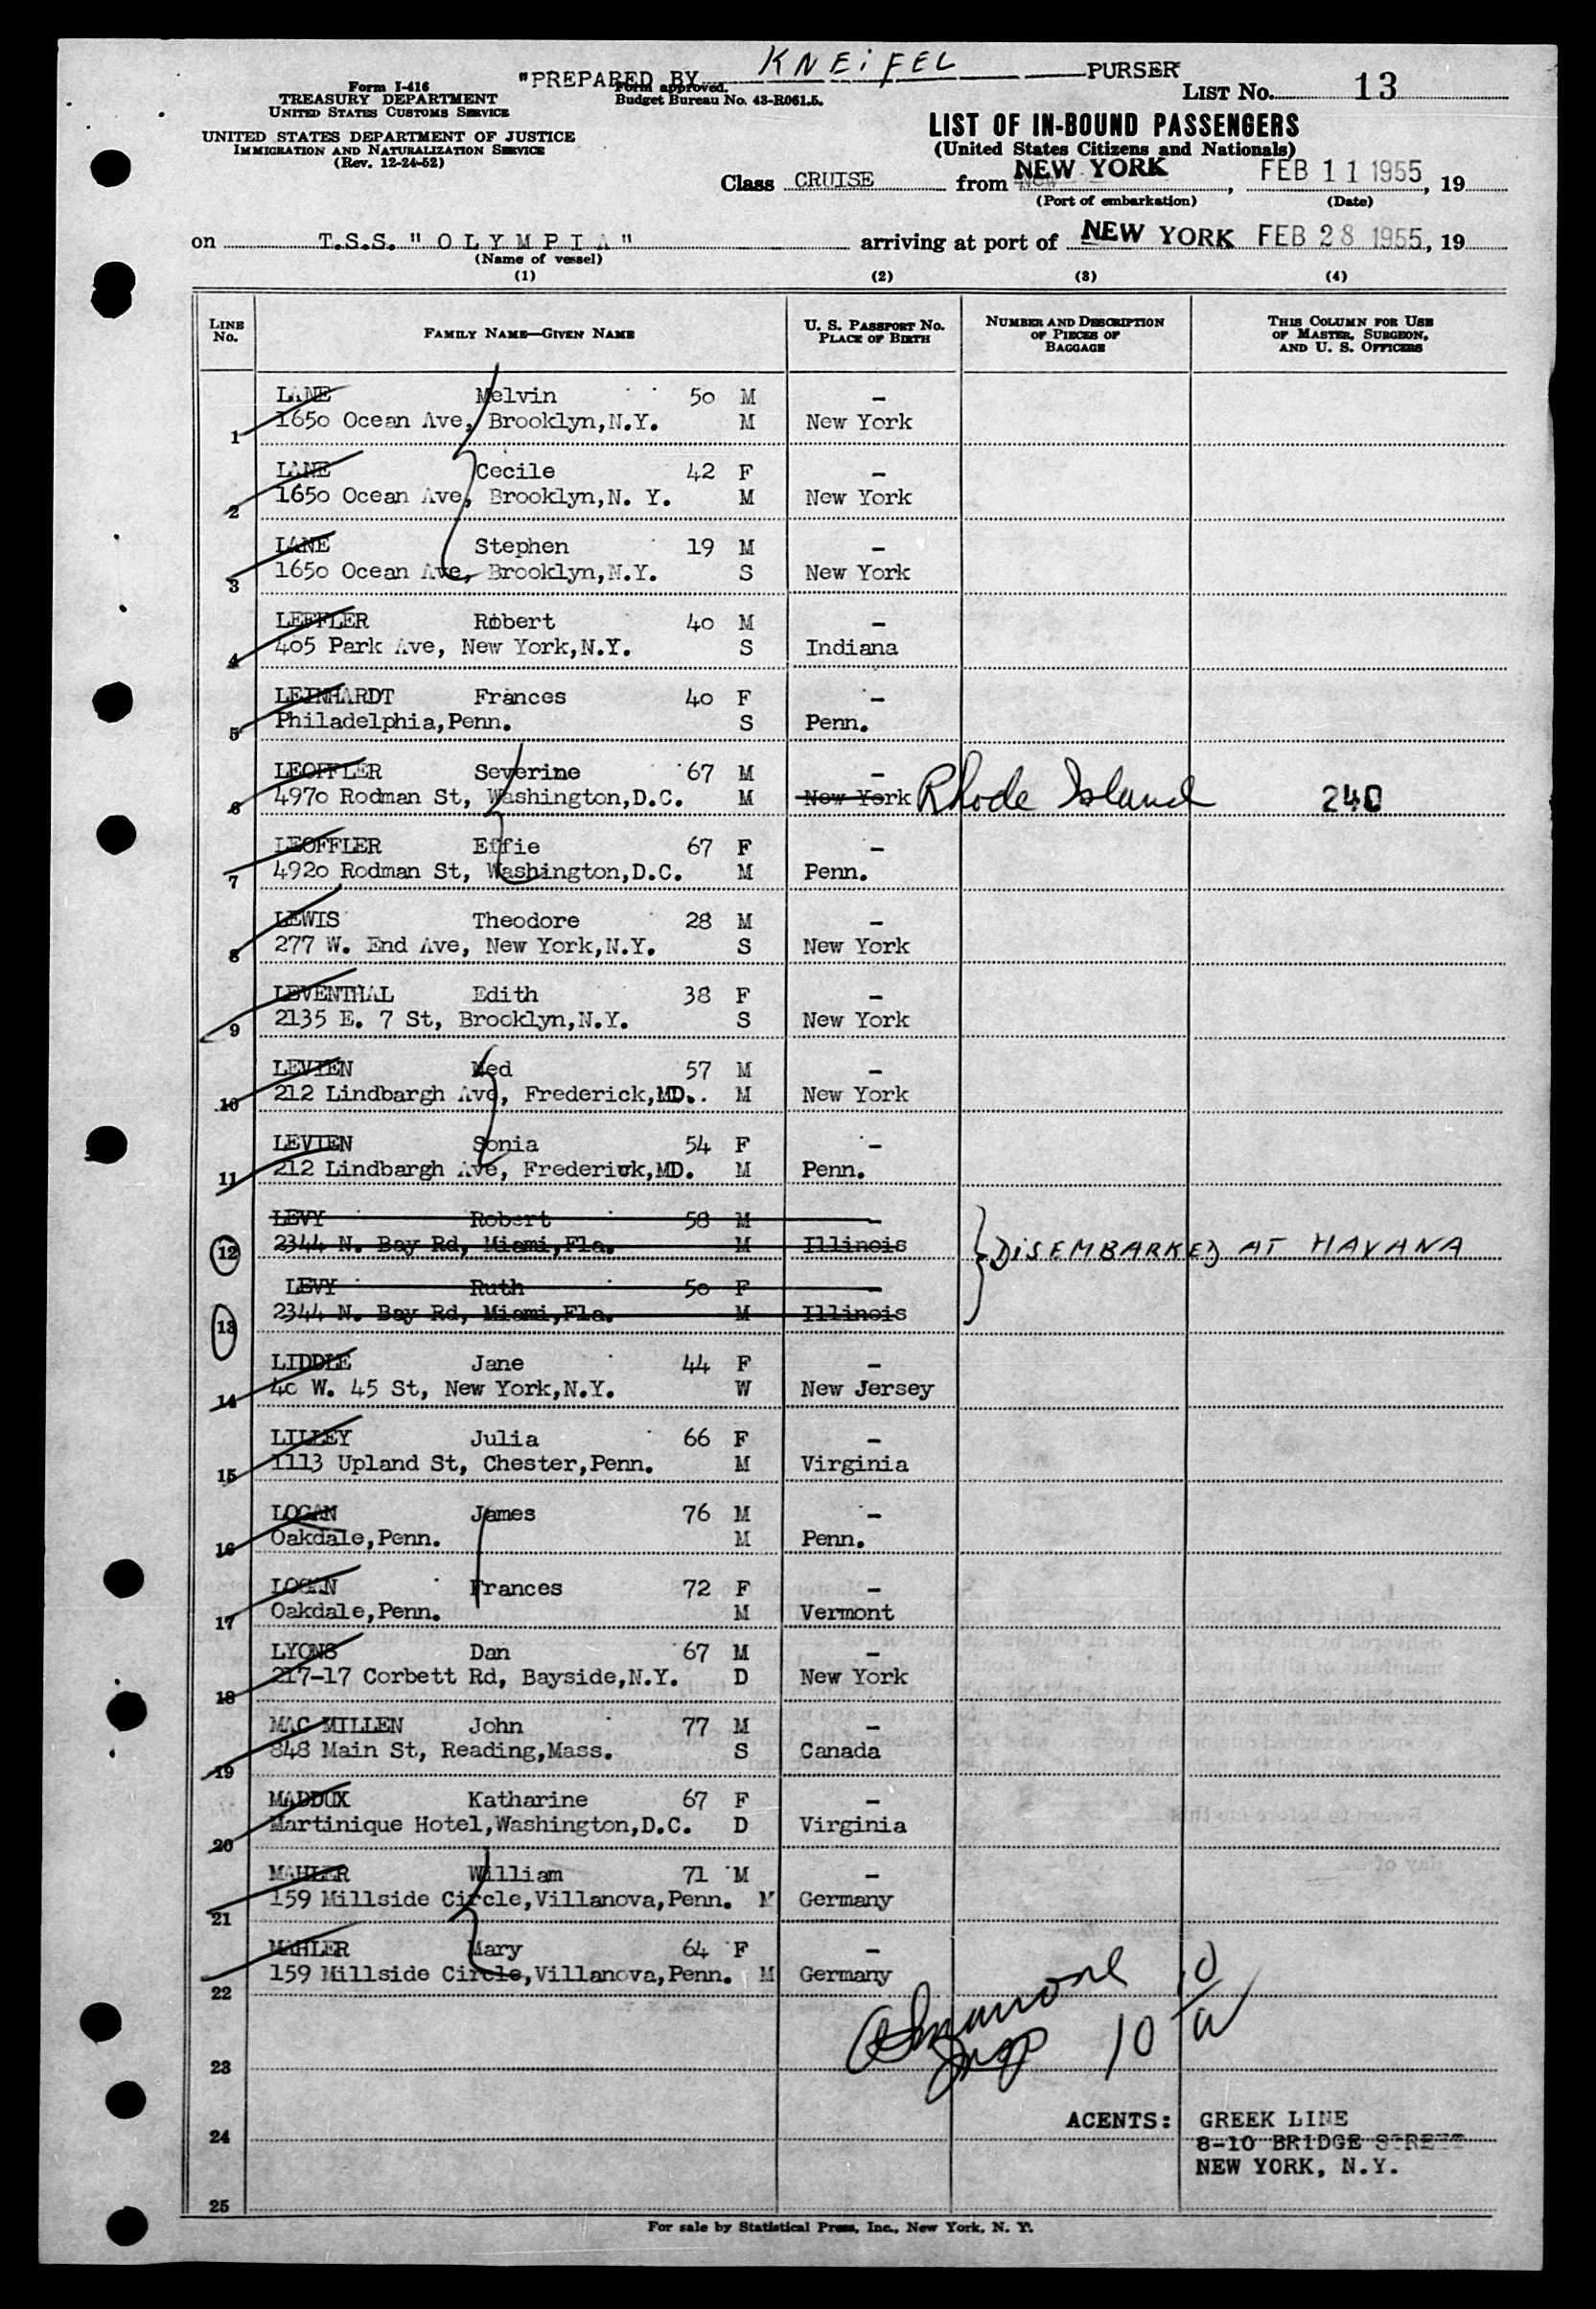 "PREPARED BY KNEIFEL PURSER
Form I-416
TREASURY DEPARTMENT
UNITED STATES CUSTOMS SERVICE
Form approved.
Budget Bureau No. 43-R061.5.
LIST No. 13
UNITED STATES DEPARTMENT OF JUSTICE
IMMIGRATION AND NATURALIZATION SERVICE
(Rev. 12-24-52)
LIST OF IN-BOUND PASSENGERS
(United States Citizens and Nationals)
Class CRUISE from NEW YORK, FEB 11 1955, 19
(Port of embarkation) (Date)
on T.S.S. "OLYMPIA" arriving at port of NEW YORK FEB 28 1955, 19
(Name of vessel)
(1) (2) (3) (4)
LINE No. FAMILY NAME—GIVEN NAME U. S. PASSPORT No. PLACE OF BIRTH NUMBER AND DESCRIPTION OF PIECES OF BAGGAGE THIS COLUMN FOR USE OF MASTER, SURGEON, AND U. S. OFFICERS
LANE Melvin 50 M -
1 1650 Ocean Ave, Brooklyn,N.Y. M New York
LANE Cecile 42 F -
2 1650 Ocean Ave, Brooklyn,N. Y. M New York
LANE Stephen 19 M -
3 1650 Ocean Ave, Brooklyn,N.Y. S New York
LEFFLER Robert 40 M -
4 405 Park Ave, New York,N.Y. S Indiana
LEINHARDT Frances 40 F -
5 Philadelphia,Penn. S Penn.
LEOFFLER Severine 67 M -
6 4970 Rodman St, Washington,D.C. M New York Rhode Island 240
LEOFFLER Effie 67 F -
7 4920 Rodman St, Washington,D.C. M Penn.
LEWIS Theodore 28 M -
8 277 W. End Ave, New York,N.Y. S New York
LEVENTHAL Edith 38 F -
9 2135 E. 7 St, Brooklyn,N.Y. S New York
LEVIEN Ned 57 M -
10 212 Lindbargh Ave, Frederick,MD.. M New York
LEVIEN Sonia 54 F -
11 212 Lindbargh Ave, Frederick,MD. M Penn.
LEVY Robert 58 M -
12 2344 N. Bay Rd, Miami,Fla. M Illinois DISEMBARKED AT HAVANA
LEVY Ruth 50 F -
13 2344 N. Bay Rd, Miami,Fla. M Illinois
LIDDLE Jane 44 F -
14 40 W. 45 St, New York,N.Y. W New Jersey
LILLEY Julia 66 F -
15 1113 Upland St, Chester,Penn. M Virginia
LOGAN James 76 M -
16 Oakdale,Penn. M Penn.
LOGAN Frances 72 F -
17 Oakdale,Penn. M Vermont
LYONS Dan 67 M -
18 217-17 Corbett Rd, Bayside,N.Y. D New York
MAC MILLEN John 77 M -
19 848 Main St, Reading,Mass. S Canada
MADDUX Katharine 67 F -
20 Martinique Hotel,Washington,D.C. D Virginia
MAHLER William 71 M -
21 159 Millside Circle,Villanova,Penn. M Germany
MAHLER Mary 64 F -
159 Millside Circle,Villanova,Penn. M Germany
22
Insp 10
23
AGENTS: GREEK LINE
24 8-10 BRIDGE STREET
NEW YORK, N.Y.
25
For sale by Statistical Press, Inc., New York, N. Y.